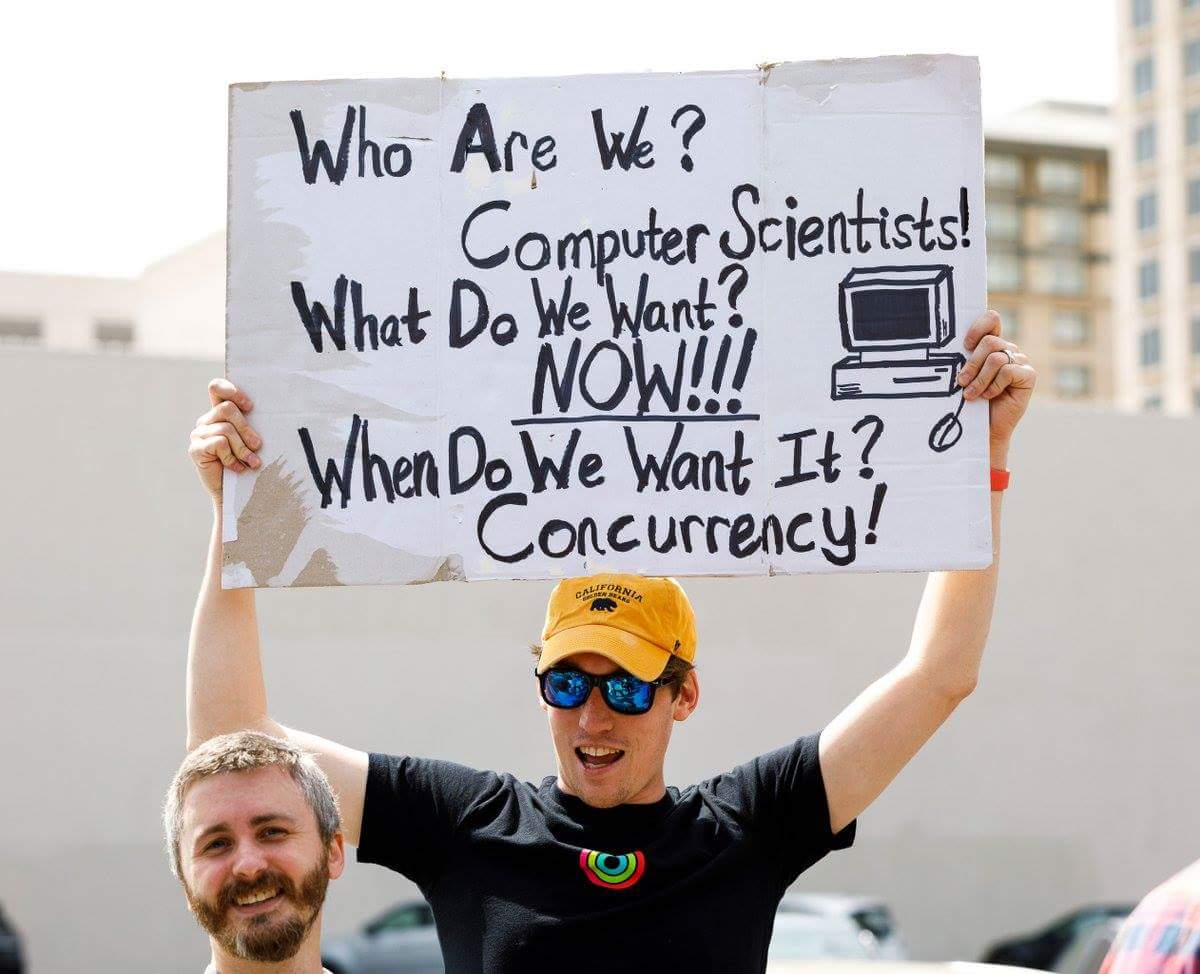 Who Are We?
Computer Scientists!
What Do We Want?
NOW!!!
When Do We Want It?
Concurrency!
CALIFORNIA
GOLDEN BEARS